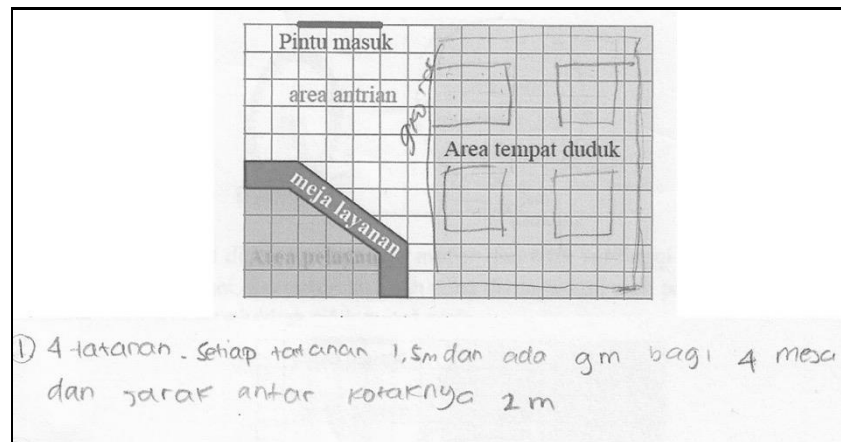 Pintu masuk
area antrian
Area tempat duduk
meja layanan
Area pelayanan
① 4 tatanan. Setiap tatanan 1,5m dan ada 9m bagi 4 meja
dan jarak antar kotaknya 2 m